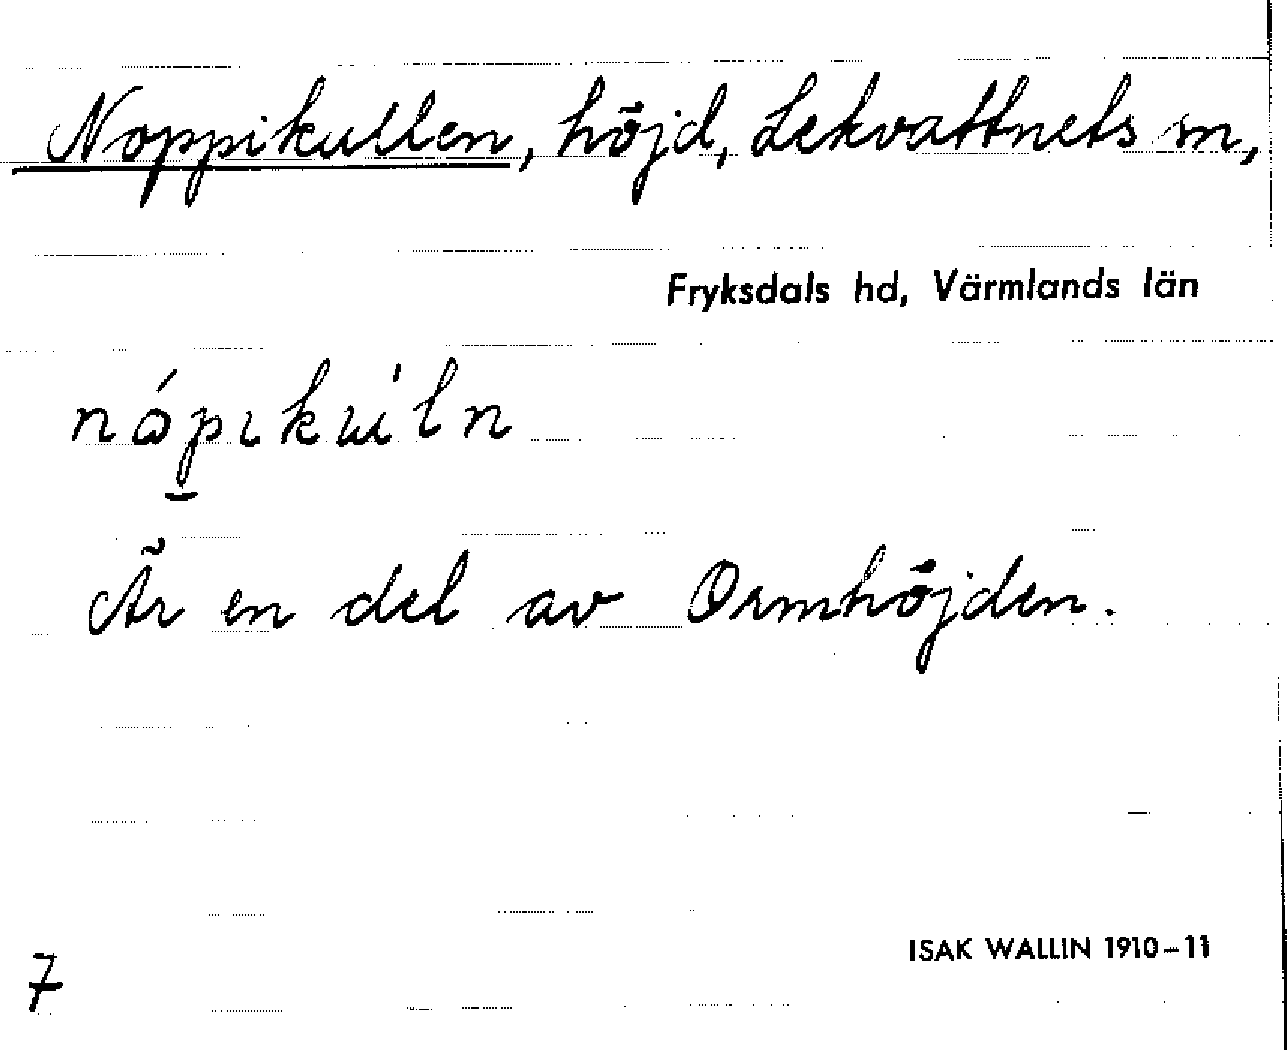 Noppikullen, höjd, Lekvattnets sn,
Fryksdals hd, Värmlands län
nópıkuı'ln
Är en del av Ormhöjden.
ISAK WALLIN 1910–11
7